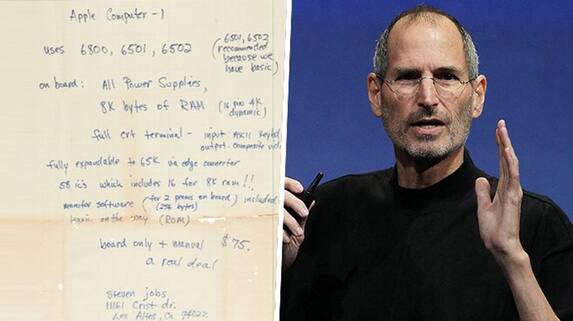 Apple Computer - 1
uses 6800, 6501, 6502 (6501, 6502
recommended
because we
have basic)
on board: All Power Supplies,
8K bytes of RAM (16 pin 4K
dynamic)
full crt terminal - input: ASCII Keyboa
output: composite vide
fully expandable to 65K via edge connector
58 ic's which includes 16 for 8K ram!!
monitor software (for 2 proms on board) included
(256 bytes)
basic on the way (ROM)
board only + manual $75.
a real deal
steven jobs
11161 Crist dr.
Los Altos, Ca 94022